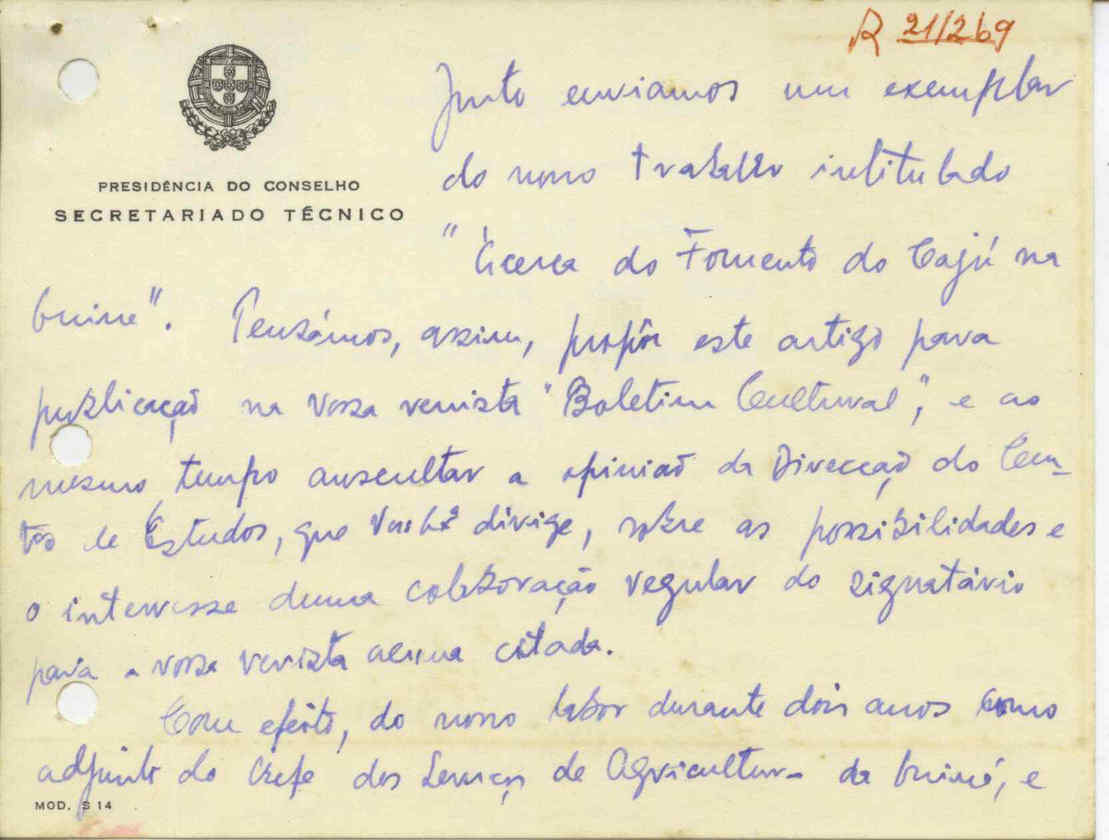 R 21/269
PRESIDÊNCIA DO CONSELHO
SECRETARIADO TÉCNICO
Junto enviamos um exemplar
do nosso trabalho intitulado
"Ácerca do Fomento do Cajú na
Guine". Pensámos, assim, propôr este artigo para
publicação na vossa revista "Boletim Cultural", e ao
mesmo tempo auscultar a opinião da Direcção do Cen-
tro de Estudos, que dirige, sobre as possibilidades e
o interesse duma colaboração regular do signatário
para a vossa revista acima citada.
Com efeito, do nosso labor durante dois anos como
adjunto do Chefe dos Serviços de Agricultura da Guiné, e
MOD. S 14